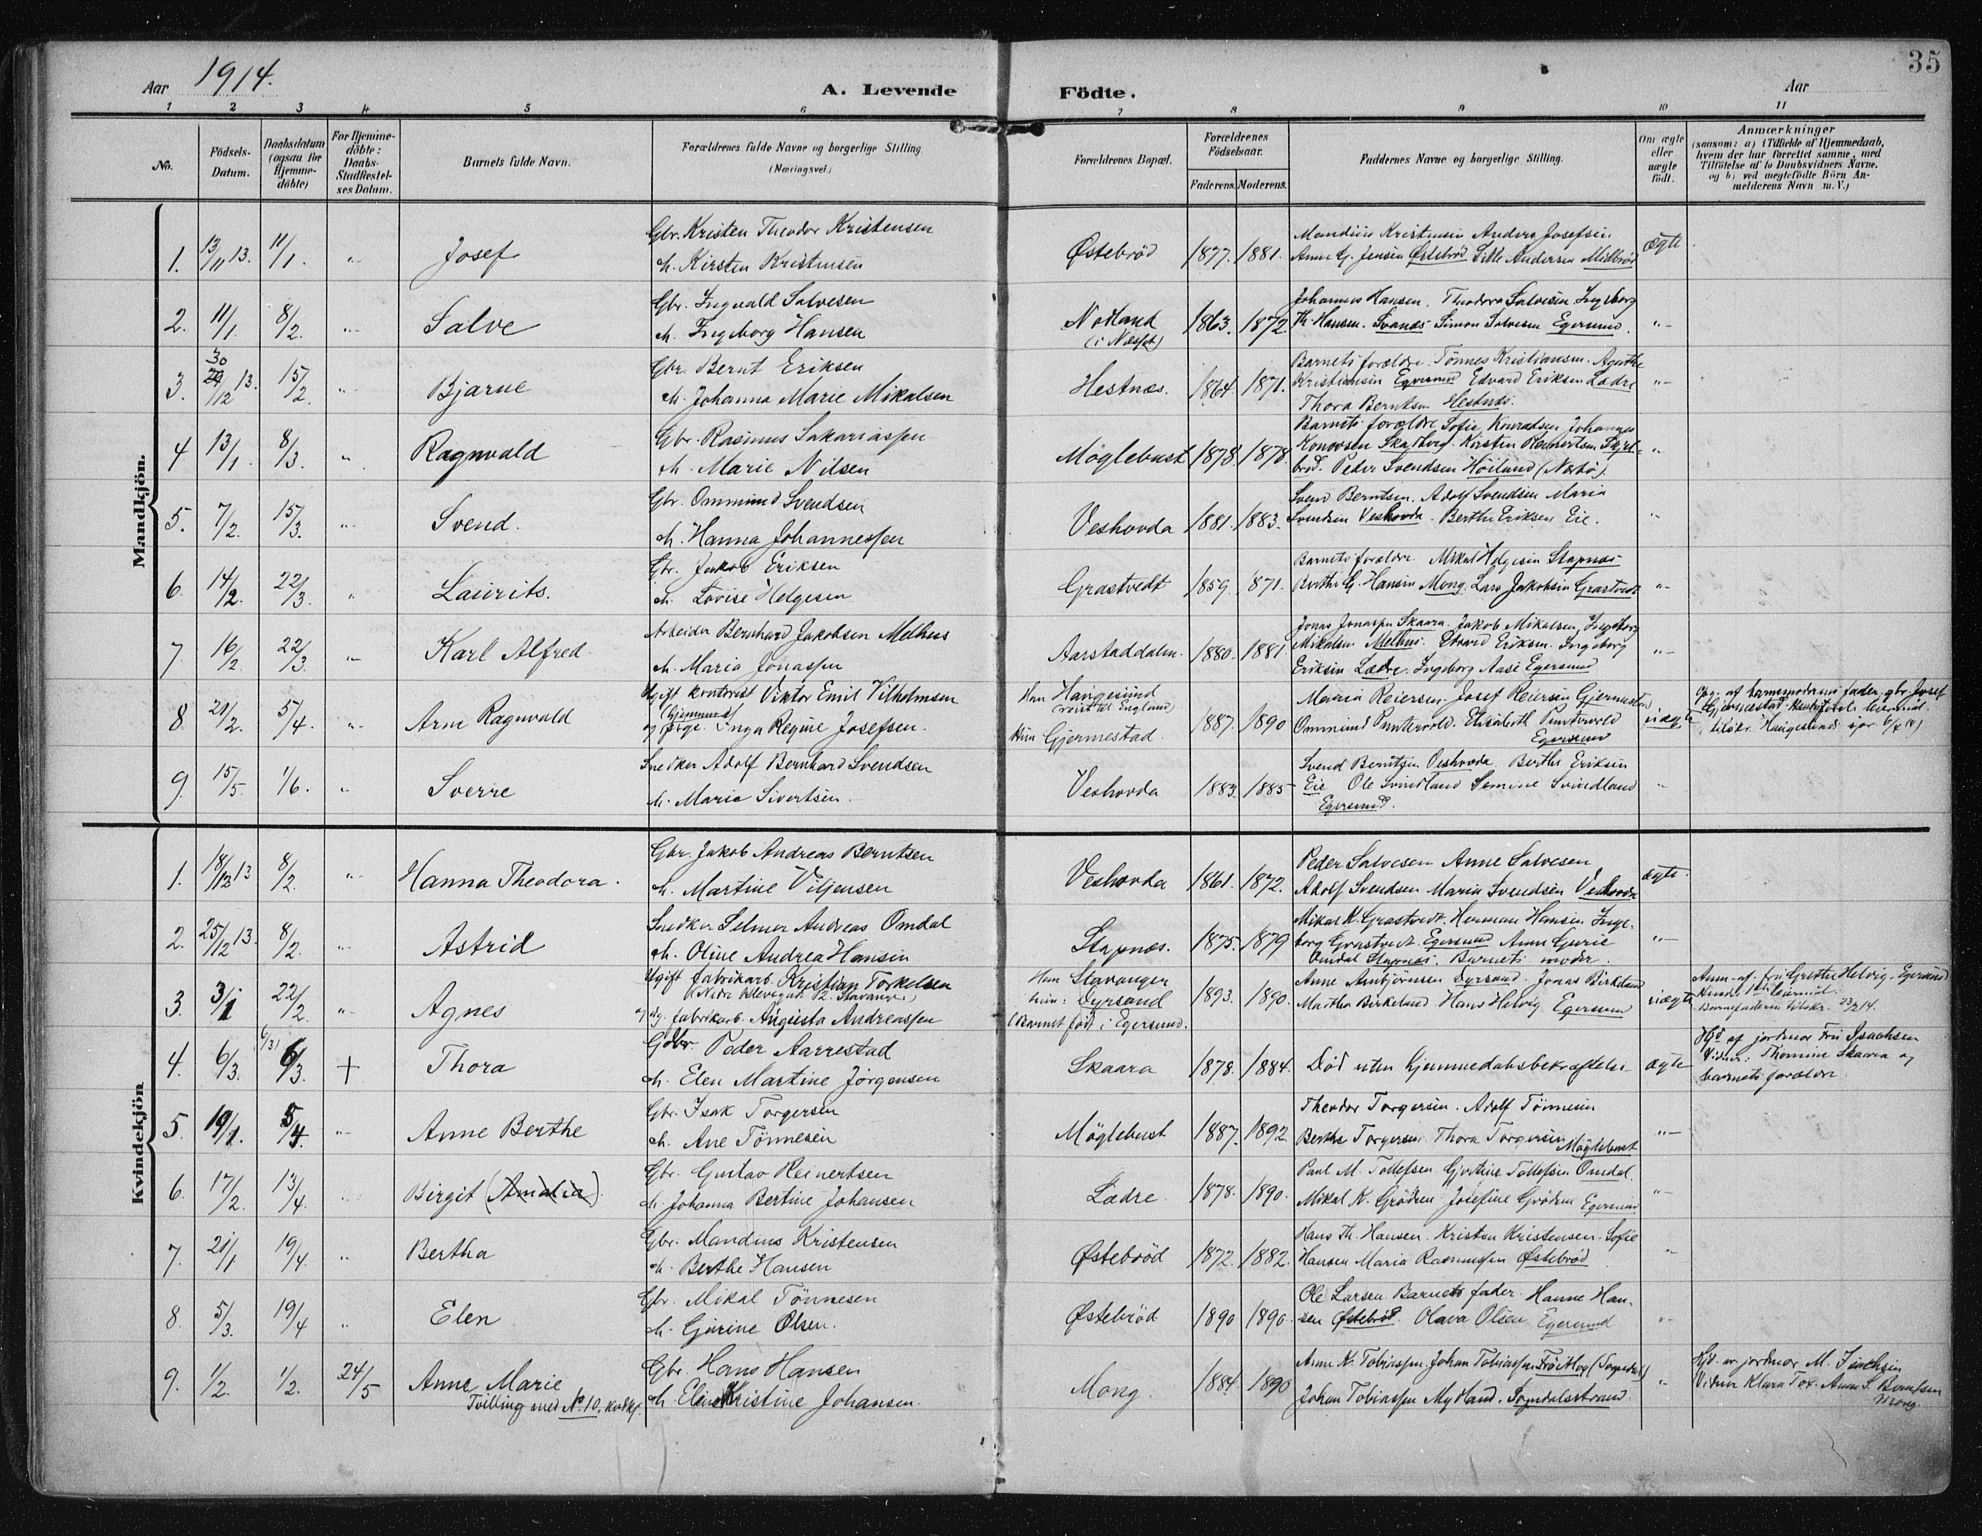 35
Aar 1914. A. Levende Födte. Aar
1 2 3 4 5 6 7 8 9 10 11
No. Födsels-Datum. Daabsdatum (ogsaa for Hjemme-döbte) For Hjemme-döbte: Daabs-Stadfæstel-ses Datum. Barnets fulde Navn. Forældrenes fulde Navne og borgerlige Stilling (Næringsvei.) Forældrenes Bopæl. Forældrenes Födselsaar. Faderens. Moderens. Faddernes Navne og borgerlige Stilling. Om ægte eller uægte födt. Anmærkninger (saasom: a) i Tilfælde af Hjemmedaab, hvem der har forrettet samme, med Tilföielse af to Daabsvidners Navne, og b) ved uægtefödte Börn An-melderens Navn m. V.)
Mandkjön.
Gbr. Kristen Theodor Kristensen Mandius Kristensen Anders Josefsen
1. 13/11 13. 11/1 " Josef h. Kirsten Kristensen Østebrød 1877. 1881. Anne G. Jensen Østebrød Sille Andersen Midbrød ægte
Gbr. Ingvald Salvesen Johannes Hansen. Theodora Salvesen Ingeborg
2. 11/1. 8/2. " Salve h. Ingeborg Hansen Nodland (i Næsset) 1863. 1872. Th. Hansen. Svanes Simon Salvesen Egersund. "
Gbr. Bernt Eriksen Barnets forældre. Tönnes Kristiansen. Agathe
3. 30/12 13. 15/2. " Bjarne h. Johanna Marie Mikalsen Hestnes. 1864. 1871. Kristiansen Egersund Edvard Eriksen Lædre "
Thora Berntsen Hestnes.
Gbr. Rasmus Sakariassen Barnets forældre. Sofie Konradsen Johannes
4 13/1. 8/3. " Ragnvald h. Marie Nilsen Möglebust 1878 1878.
brød. Peder Svendsen Höiland (Nærbö). "
Gbr. Ommund Svendsen Svend Berntsen. Adolf Svendsen Maria
5. 7/2. 15/3. " Svend. h. Hanna Johannessen Veshovda 1881. 1883. Svendsen Veshovda. Berthe Eriksen Eie. "
Gbr. Jakob Eriksen Barnets forældre. Mikal Helgesen Stapnes
6. 14/2. 22/3. " Laurits. h. Lovise Helgesen Grastvedt 1859. 1871. Berthe G. Hansen Mong. Lars Jakobsen Grastvedt "
Arbeider Bernhard Jakobsen Melhus Jonas Jonassen Skaara. Jakob Mikalsen, Ingeborg
7 16/2. 22/3. " Karl Alfred. h. Maria Jonassen Aarstaddalen. 1880. 1881 Mikalsen Melhus. Edvard Eriksen. Ingeborg "
Eriksen Lædre. Ingeborg Aase Egersund
Ugift kontorist Viktor Emil Vilhelmsen Ham Haugesund (reist til England) Maria Reiersen Josef Reiersen Gjermestad
8 21/2. 5/4. " Arne Ragnvald og pige. Inga Regine Josefsen. Hun Gjermestad. 1887. 1890 Ommund Puntervold. Elisabeth Puntervold Egersund uægte Opg. af barnemoderens fader, gbr. Josef Gjermestad.
Snedker Adolf Bernhard Svendsen Svend Berntsen Veshovda Berthe Eriksen
9. 15/5. 1/6. " Sverre h. Maria Sivertsen. Veshovda 1883. 1885 Eie Ole Svindland Semine Svindland "
Egersund.
Kvindekjön
Gbr. Jakob Andreas Berntsen Peder Salvesen Anne Salvesen
1. 18/12 13 8/2. " Hanna Theodora. h. Martine Viljensen Veshovda 1861. 1872. Adolf Svendsen Maria Svendsen Veshovda ægte.
Snedker Selmer Andreas Omdal Mikal K. Grastvedt. Herman Hansen Inge-
2. 25/12 13. 8/2. " Astrid h. Oline Andrea Hansen Stapnes. 1875. 1879 borg Grastvedt Egersund Anne Gurie "
Omdal Stapnes. Barnets moder.
Ugift fabrikarb. Kristian Torkelsen Ham Stavanger Anne Ambjörnsen Eyrsand. Jonas Birkeland Anm. af: fru Grethe Helvig. Egersund
3. 3/1 22/2. " Agnes ug. fabrikarb. Augusta Andreassen hun: Eyrsand (Barnet født i Egersund. 1893. 1890. Martha Birkeland Hans Helvig Egersund uægte
Gbr. Peder Aarrestad Hjd. af jordmor Fru Isachsen
4. 6/3. 6/3. + Thora h. Elen Martine Jørgensen Skaara 1878. 1884. Død uten hjemmedåbsbekræftelse ægte Vidner: Thomine Skaara og barnets forældre.
Gbr. Isak Torgersen Theodor Torgersen. Adolf Tönnesen
5. 19/1. 5/4. " Anne Berthe h. Ane Tönnesen Möglebust 1887. 1892. Berthe Torgersen Thora Torgersen Möglebust "
Gbr. Gustav Reinertsen Paul M. Tollefsen. Gjertine Tollefsen Omdal.
6. 17/2. 13/4. " Birgit (Amalia). h. Johanna Bertine Johansen Lædre. 1878. 1890. Mikal K. Grödem Josefine Grödem Egersund "
Gbr. Mandius Kristensen Hans Th. Hansen. Kristen Kristensen. Sofie
7. 21/1. 19/4 " Bertha h. Berthe Hansen Østebrød 1872. 1882. Hansen Maria Rasmussen Østebrød "
Gbr. Mikal Tönnesen Ole Larsen Barnets fader. Hanne Han-
8. 5/3. 19/4 " Elen h. Gjurine Olsen. Østebrød 1890 1890. sen Østebrød. Olava Olsen Egersund "
Gbr Hans Hansen Anne K. Tobiassen. Johan Tobiassen Frøitlog (Sogndal) Hjd. av jordmor M. Isachsen
9. 1/2. 1/2. 24/5 Anne Marie h. Eline Kristine Johansen. Mong. 1884. 1890 Johan Tobiassen Mydland. Sogndalsstrand " Vidner Klara Tox. Anne S. Berntsen Mong.
Tvilling med No. 10. kvdkj.